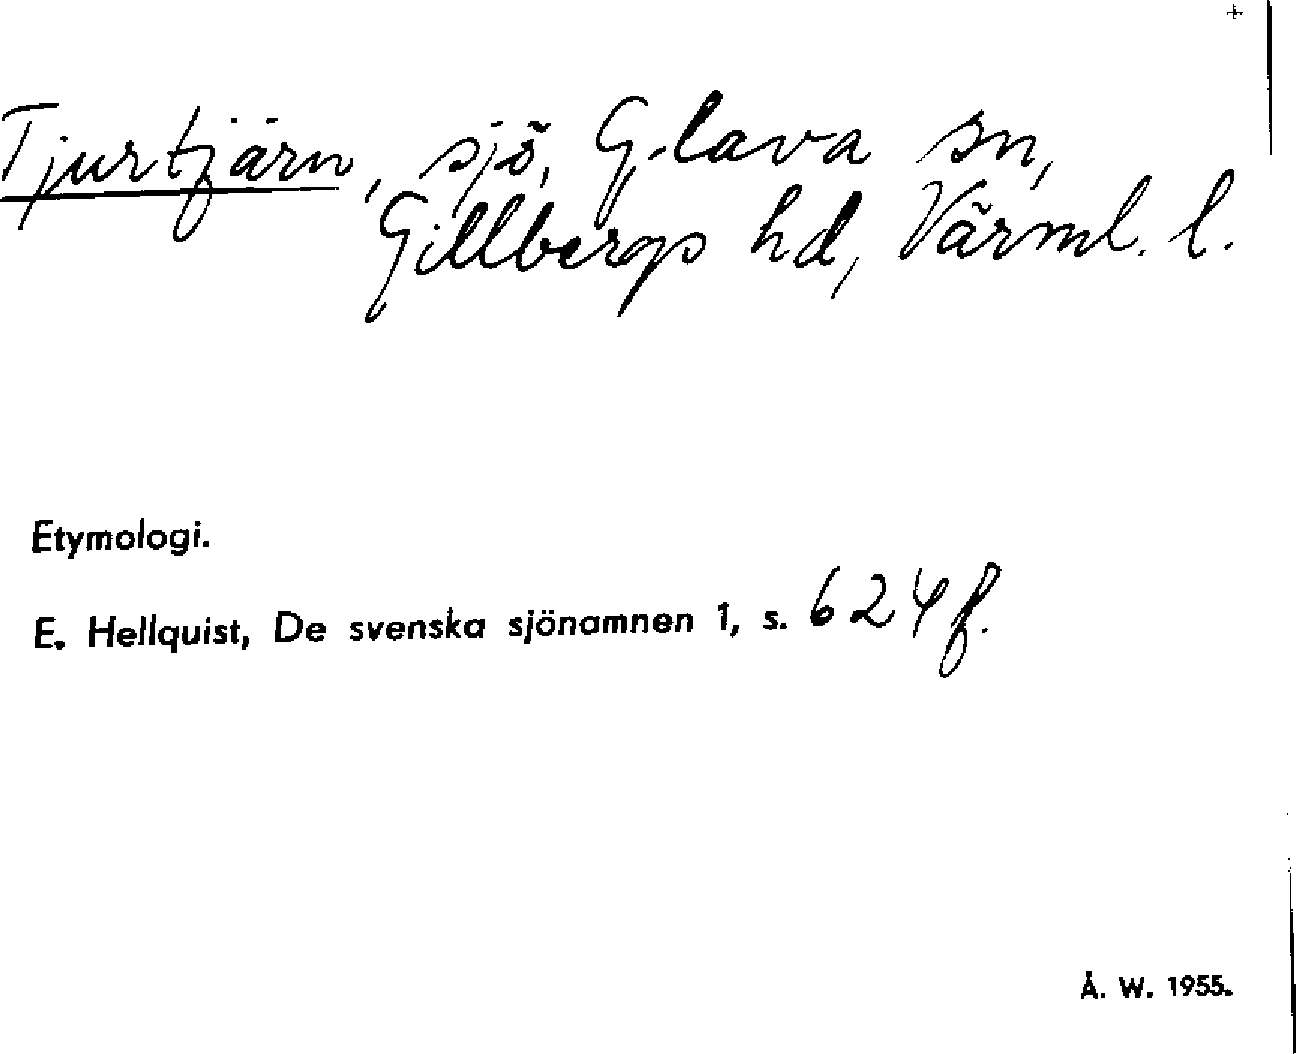 Tjurtjärn, sjö, Glava sn,
Gillbergs hd, Värml. l.
Etymologi.
E. Hellquist, De svenska sjönamnen 1, s. 624 f.
Å. W. 1955.